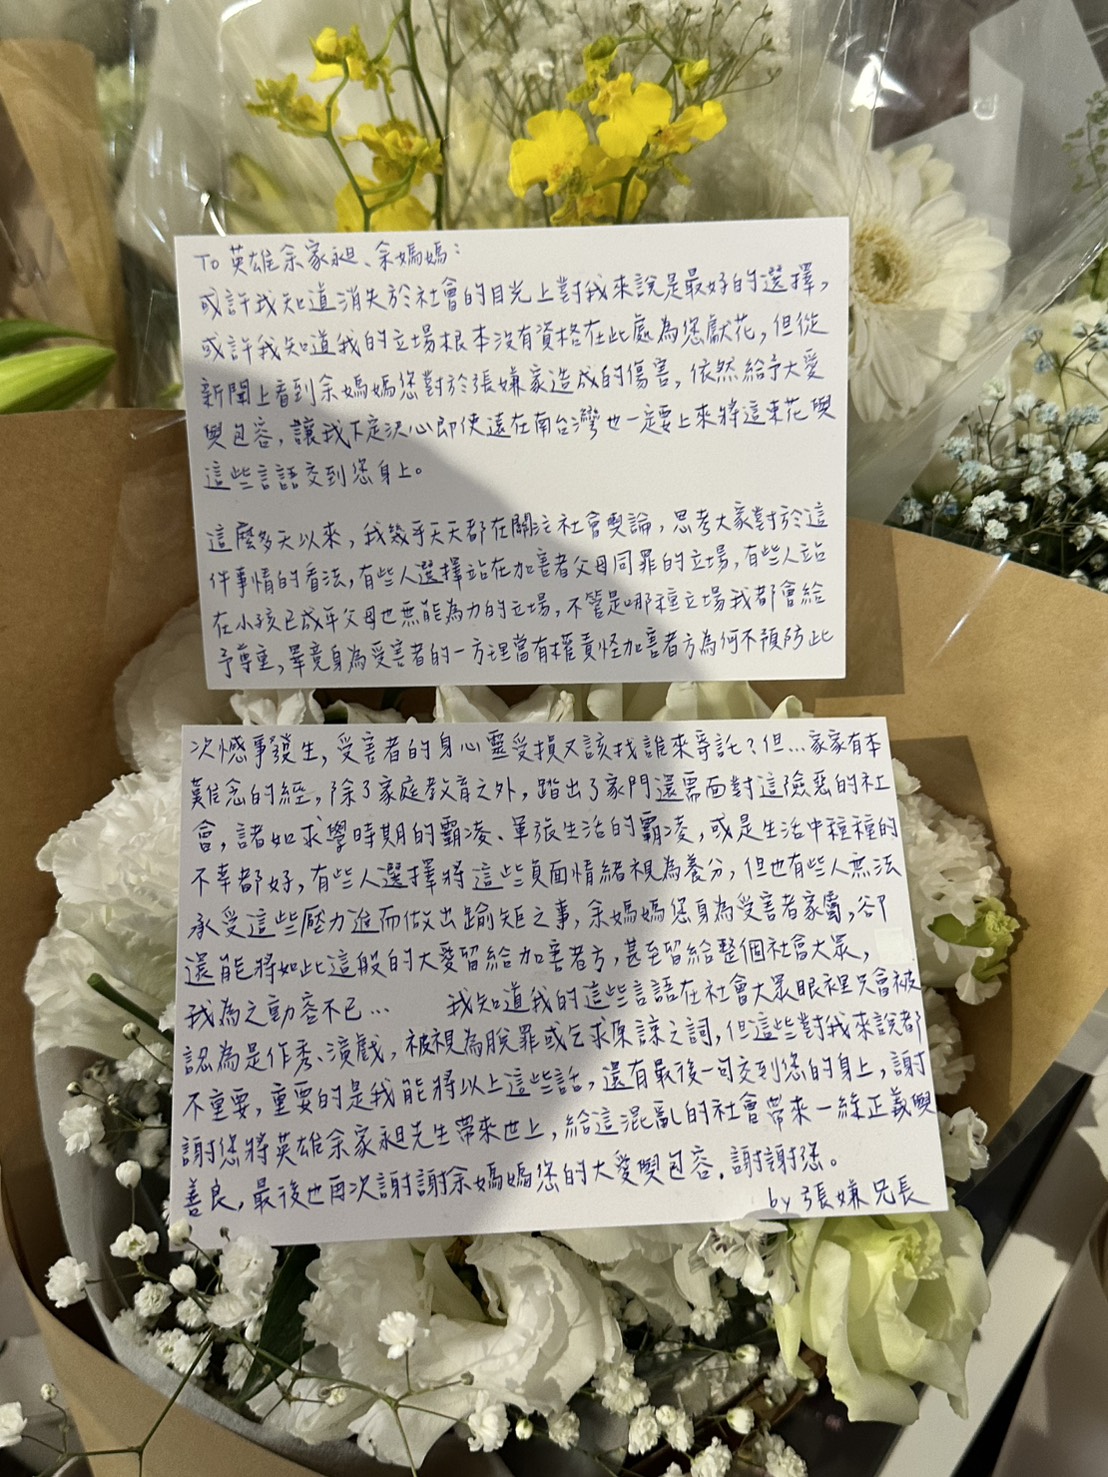 To 英雄余家昶、余媽媽：
或許我知道消失於社會的目光上對我來說是最好的選擇，
或許我知道我的立場根本沒有資格在此處為您獻花，但從
新聞上看到余媽媽您對於張嫌家造成的傷害，依然給予大愛
與包容，讓我下定決心即使遠在南台灣也一定要上來將這束花與
這些言語交到您身上。
這麼多天以來，我幾乎天天都在關注社會輿論，思考大家對於這
件事情的看法，有些人選擇站在加害者父母同罪的立場，有些人站
在小孩已成年父母也無能為力的立場，不管是哪種立場我都會給
予尊重，畢竟身為受害者的一方理當有權責怪加害者方為何不預防此
次憾事發生，受害者的身心靈受損又該找誰來寄託？但...家家有本
難念的經，除了家庭教育之外，踏出了家門還需面對這險惡的社
會，諸如求學時期的霸凌、軍旅生活的霸凌，或是生活中種種的
不幸都好，有些人選擇將這些負面情緒視為養分，但也有些人無法
承受這些壓力進而做出踰矩之事，余媽媽您身為受害者家屬，卻
還能將如此這般的大愛留給加害者方，甚至留給整個社會大眾，
我為之動容不已... 我知道我的這些言語在社會大眾眼裡只會被
認為是作秀、演戲，被視為脫罪或乞求原諒之詞，但這些對我來說都
不重要，重要的是我能將以上這些話，還有最後一句交到您的身上，謝
謝您將英雄余家昶先生帶來世上，給這混亂的社會帶來一絲正義與
善良，最後也再次謝謝余媽媽您的大愛與包容，謝謝您。
by 張嫌兄長